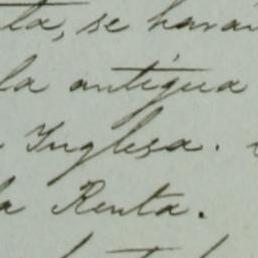 ta, se harán
la antigua
Inglesa.
la Renta.